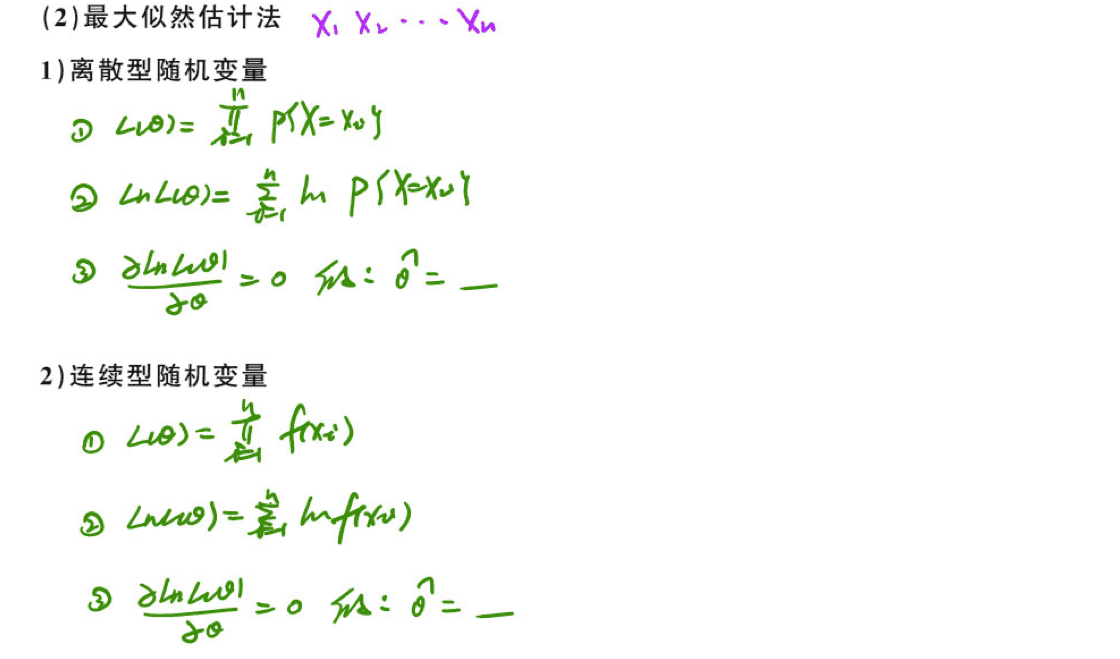 (2)最大似然估计法 X₁ X₂ ⋯ Xₙ
1)离散型随机变量
① L(θ)= ∏ᵢ₌₁ⁿ P{X=xᵢ}
② lnL(θ)= ∑ᵢ₌₁ⁿ ln P{X=xᵢ}
③ ∂lnL(θ)/∂θ = 0 解: θ̂ = __
2)连续型随机变量
① L(θ)= ∏ᵢ₌₁ⁿ f(xᵢ)
② lnL(θ)= ∑ᵢ₌₁ⁿ ln f(xᵢ)
③ ∂lnL(θ)/∂θ = 0 解: θ̂ = __